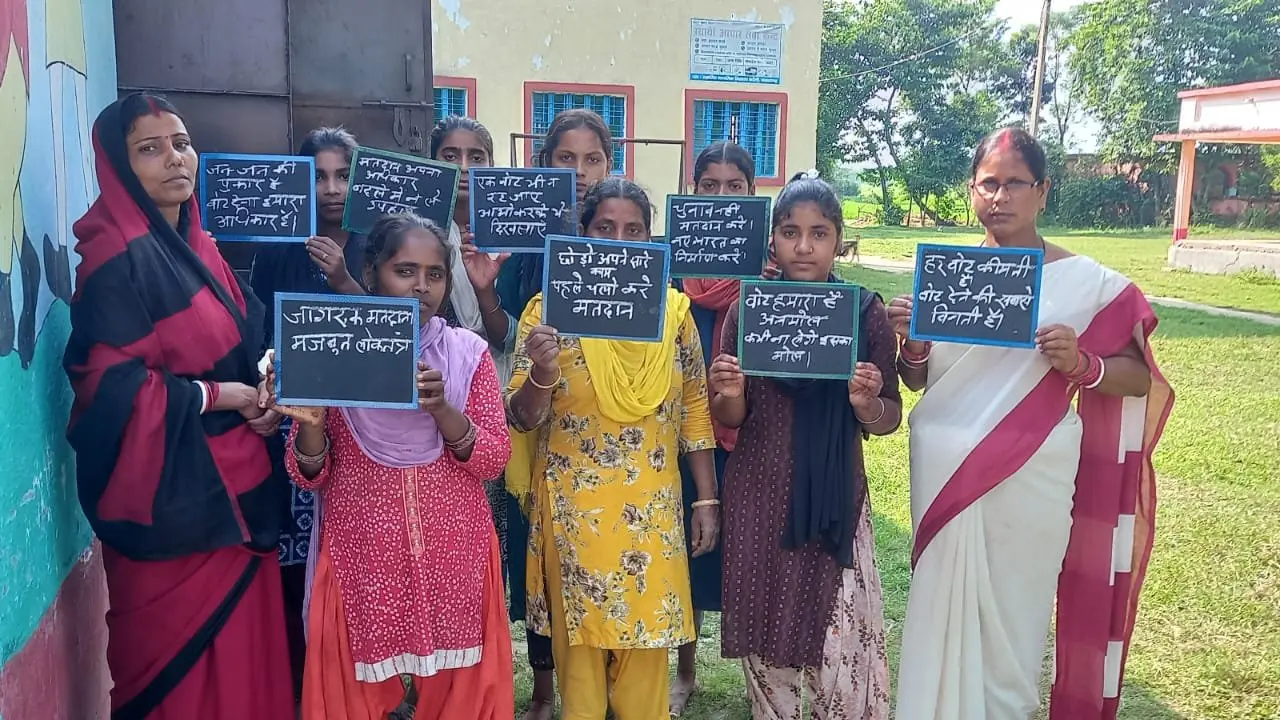 स्थायी आधार सेवा केन्द्र
जन-जन की
पुकार है
वोट देना हमारा
अधिकार है।
मतदान अपना
अधिकार
बदले में न लो
उपहार
एक वोट भी न
रह जाए
आओ करके ये
दिखलाए
चुनाव नहीं
मतदान करें।
नए भारत का
निर्माण करें।
हर वोट कीमती
है।
वोट देने की सबसे
विनती है।
छोड़ो अपने सारे
काम
पहले चलो करे
मतदान
वोट हमारा है
अनमोल
कभी ना लेगें इसका
मोल।
जागरूक मतदाता
मजबुत लोकतंत्र